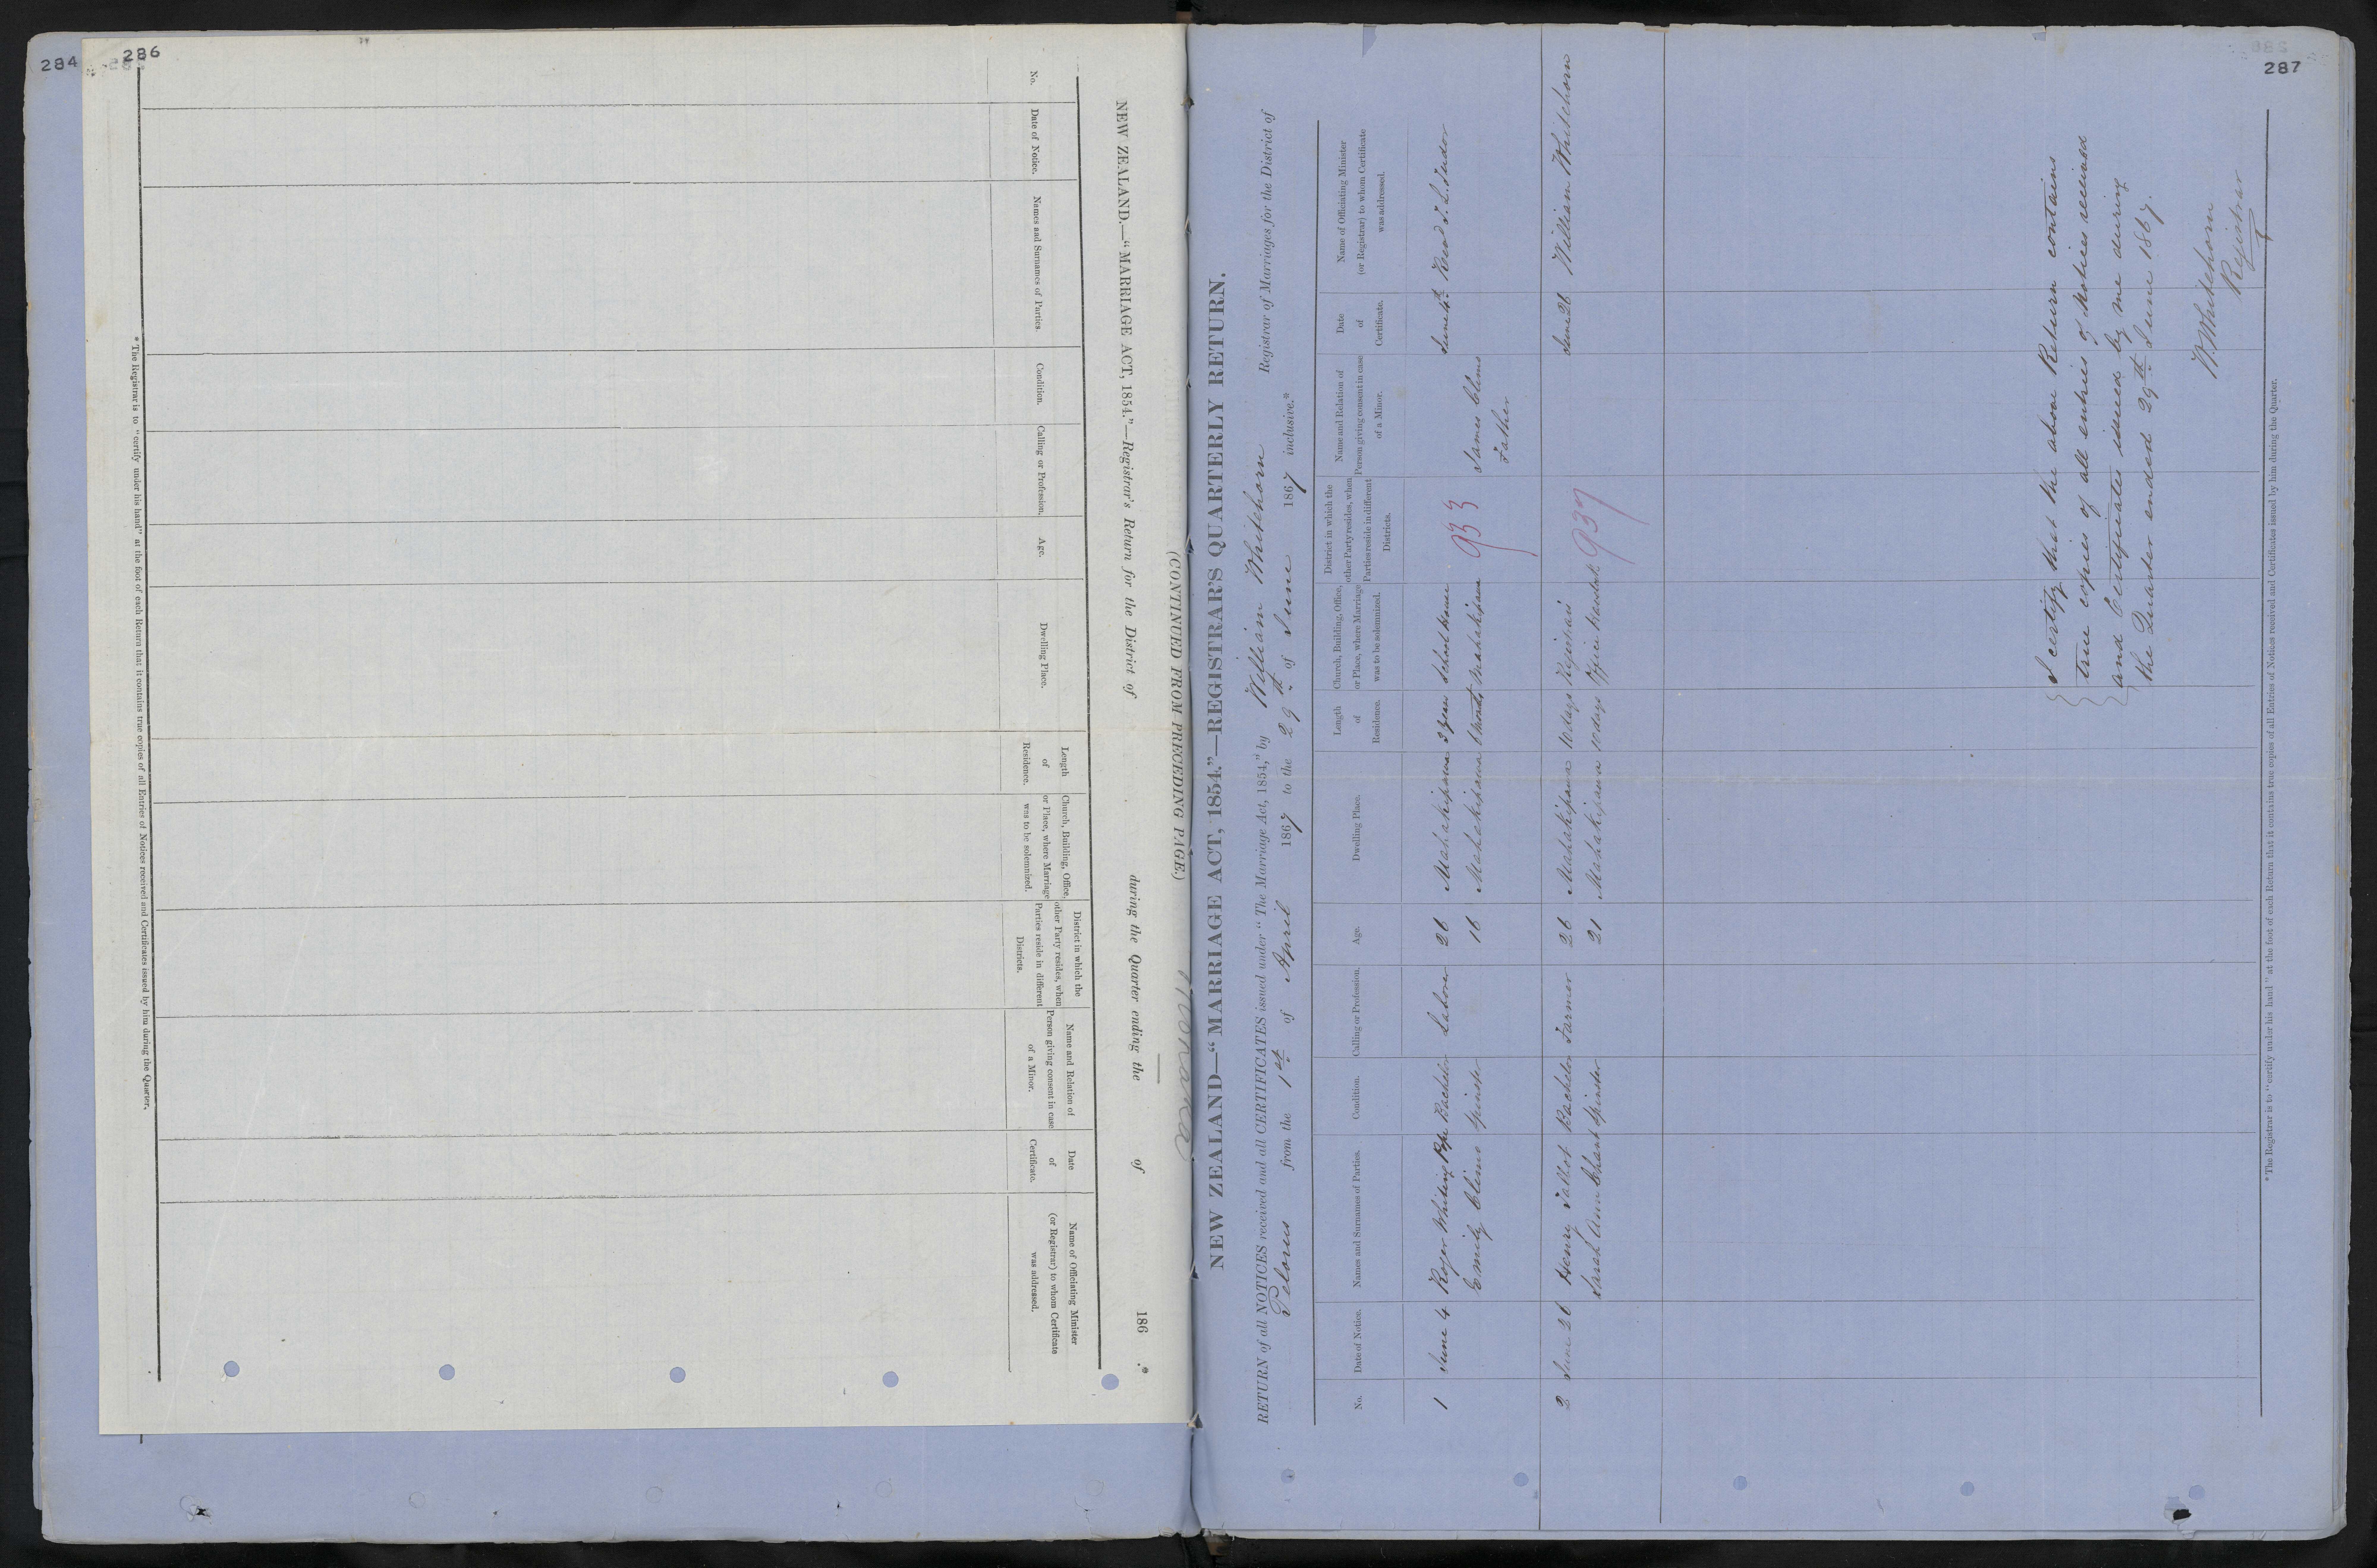 284
286
(CONTINUED FROM PRECEDING PAGE.)
NEW ZEALAND.—"MARRIAGE ACT, 1854."—Registrar's Return for the District of during the Quarter ending the of 186 .*
No.
Date of Notice.
Names and Surnames of Parties.
Condition.
Calling or Profession.
Age.
Dwelling Place.
Length
of
Residence.
Church, Building, Office,
or Place, where Marriage
was to be solemnized.
District in which the
other Party resides, when
Parties reside in different
Districts.
Name and Relation of
Person giving consent in case
of a Minor.
Date
of
Certificate.
Name of Officiating Minister
(or Registrar) to whom Certificate
was addressed.
* The Registrar is to "certify under his hand" at the foot of each Return that it contains true copies of all Entries of Notices received and Certificates issued by him during the Quarter.
287
NEW ZEALAND—"MARRIAGE ACT, 1854."—REGISTRAR'S QUARTERLY RETURN.
RETURN of all NOTICES received and all CERTIFICATES issued under "The Marriage Act, 1854," by William Whitehorn Registrar of Marriages for the District of
Pelorus from the 1st of April 1867 to the 29th of June 1867 inclusive.*
No.
Date of Notice.
Names and Surnames of Parties.
Condition.
Calling or Profession.
Age.
Dwelling Place.
Length
of
Residence.
Church, Building, Office,
or Place, where Marriage
was to be solemnized.
District in which the
other Party resides, when
Parties reside in different
Districts.
Name and Relation of
Person giving consent in case
of a Minor.
Date
of
Certificate.
Name of Officiating Minister
(or Registrar) to whom Certificate
was addressed.
1 June 4 Roger Whiting Pope Bachelor Laborer 26 Mahakipawa 3 years School house June 4th Revd T. L. Tudor
Emily Clims Spinster 16 Mahakipawa 6 months Mahakipawa 933 James Clims
Father
2 June 26 Henry Talbot Bachelor Farmer 26 Mahakipawa 10 days Registrars June 26 William Whitehorn
Sarah Ann Chant Spinster 21 Mahakipawa 10 days Office 937
I certify that the above Return contains
true copies of all entries of Notices received
and Certificates issued by me during
the Quarter ended 29th June 1867.
W. Whitehorn
Registrar
* The Registrar is to "certify under his hand" at the foot of each Return that it contains true copies of all Entries of Notices received and Certificates issued by him during the Quarter.